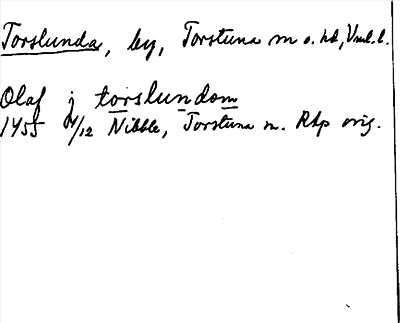 Torslunda, by, Torstuna sn o. hd, Vml. l.
Olaf j torslundom
1455 4/12 Nibble, Torstuna sn. RAp orig.